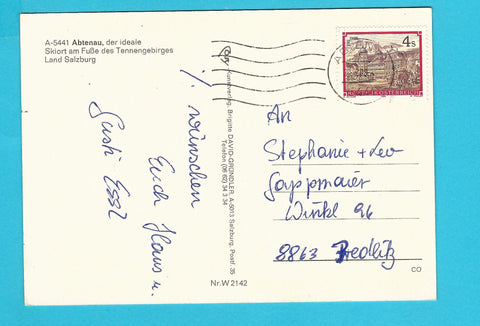 A-5441 Abtenau, der ideale
Skiort am Fuße des Tennengebirges
Land Salzburg
wünschen
Euch Hans u.
Susi Essl
Kunstverlag, Brigitte DAVID-GRÜNDLER, A-5013 Salzburg, Postf. 35
Telefon (06 62) 34 3 34
Nr. W 2142
4 S
An
Stephanie + Leo
Gappmaier
Winkl 96
8863 Predlitz
CO